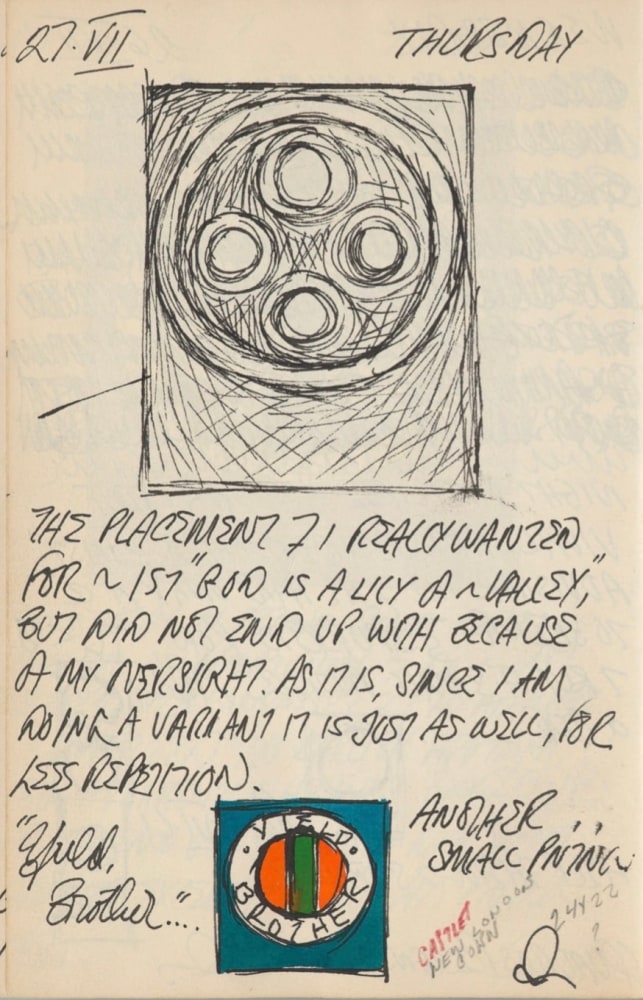 27·VII THURSDAY
THE PLACEMENT 7 I REALLY WANTED
FOR ~ 1ST "GOD IS A LILY OF ~ VALLEY,"
BUT DID NOT END UP WITH BECAUSE
OF MY OVERSIGHT. AS IT IS, SINCE I AM
DOING A VARIANT IT IS JUST AS WELL, FOR
LESS REPETITION.
"Yield,
Brother"....
·YIELD·
BROTHER
ANOTHER . .
SMALL PNTNG
NEW LONDON
CONN
24X22
?